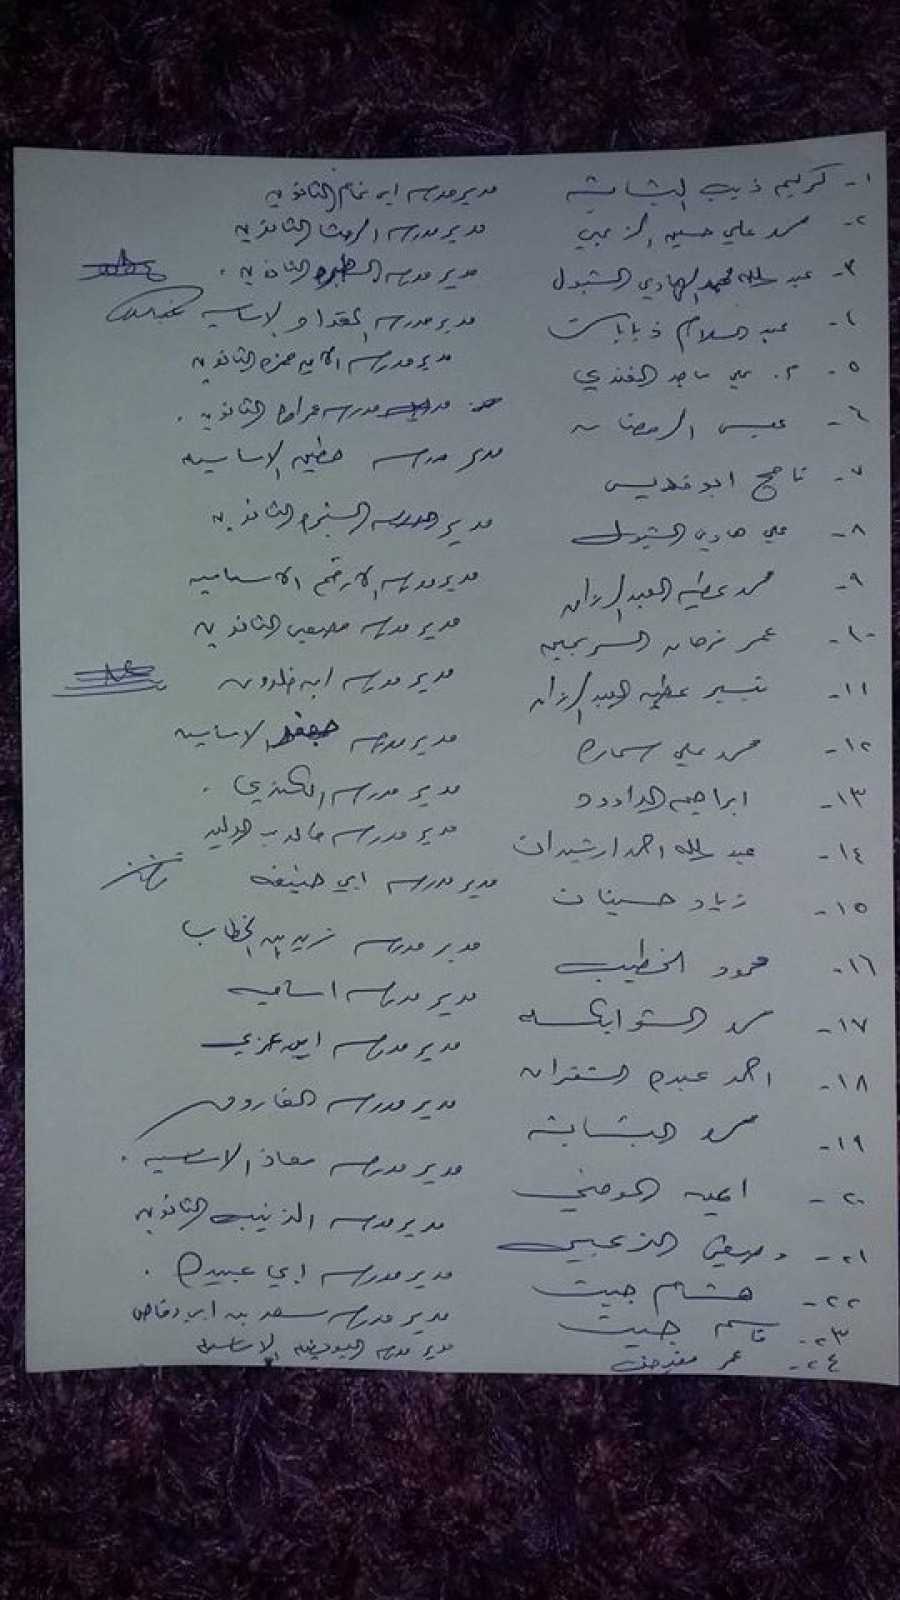 ١- كريم ذيب البشابشه مدير مدرسه ابي تمام الثانويه
٢- محمد علي حسين الزعبي مدير مدرسه الرمثا الثانويه
٣- عبدالله محمد الهادي الشبول مدير مدرسه الثانويه .
٤- عبد السلام ذيابات مدير مدرسه المقداد الاساسيه
٥- م. علي ماجد الغندي مدير مدرسه الامير حمزه الثانويه
٦- عيسى الرمضان مدرسه الثانويه .
٧- ناجح ابو قديس مدير مدرسه حطين الاساسيه
٨- علي هادي الشبول مدير مدرسه الشجره الثانويه
٩- محمد عطيه العبدالرزاق مدير مدرسه الارقم الاساسيه
١٠- عمر فرحان السريحين مدير مدرسه الثانويه
١١- تيسير عطيه العبدالرزاق مدير مدرسه ابن خلدون
١٢- محمد علي سماره مدير مدرسه جعفر الاساسيه
١٣- ابراهيم الداوود مدير مدرسه الكندي .
١٤- عبدالله احمد ارشيدات مدير مدرسه خالد بن الوليد
١٥- زياد حسينات مدير مدرسه ابي حنيفه
١٦- محمود الخطيب مدير مدرسه زيد بن الخطاب
١٧- محمد الشوابكه مدير مدرسه اسامه
١٨- احمد عبده الشقران مدير مدرسه
١٩- محمد البشابشه مدير مدرسه الفاروق
٢٠- ايمن المومني مدير مدرسه معاذ الاساسيه .
٢١- وصفي الزعبي مدير مدرسه الذنيبه الثانويه
٢٢- هشام جيت مدير مدرسه ابي عبيده .
٢٣- قاسم جيت مدير مدرسه سعد بن ابي وقاص
٢٤- عمر مدير مدرسه البويضه الاساسيه